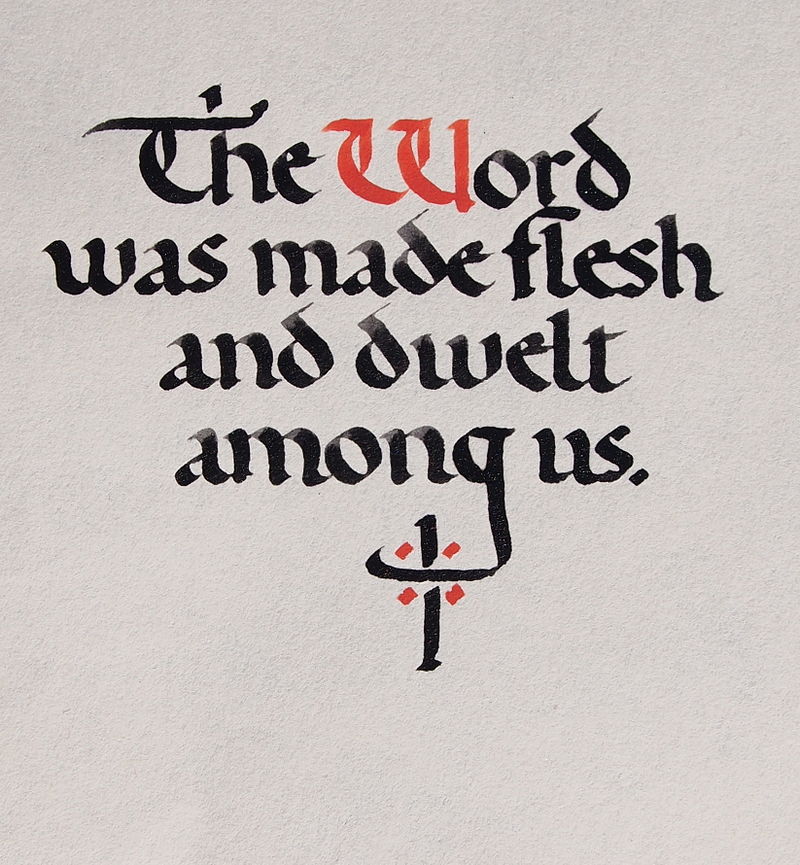 The Word
was made flesh
and dwelt
among us.